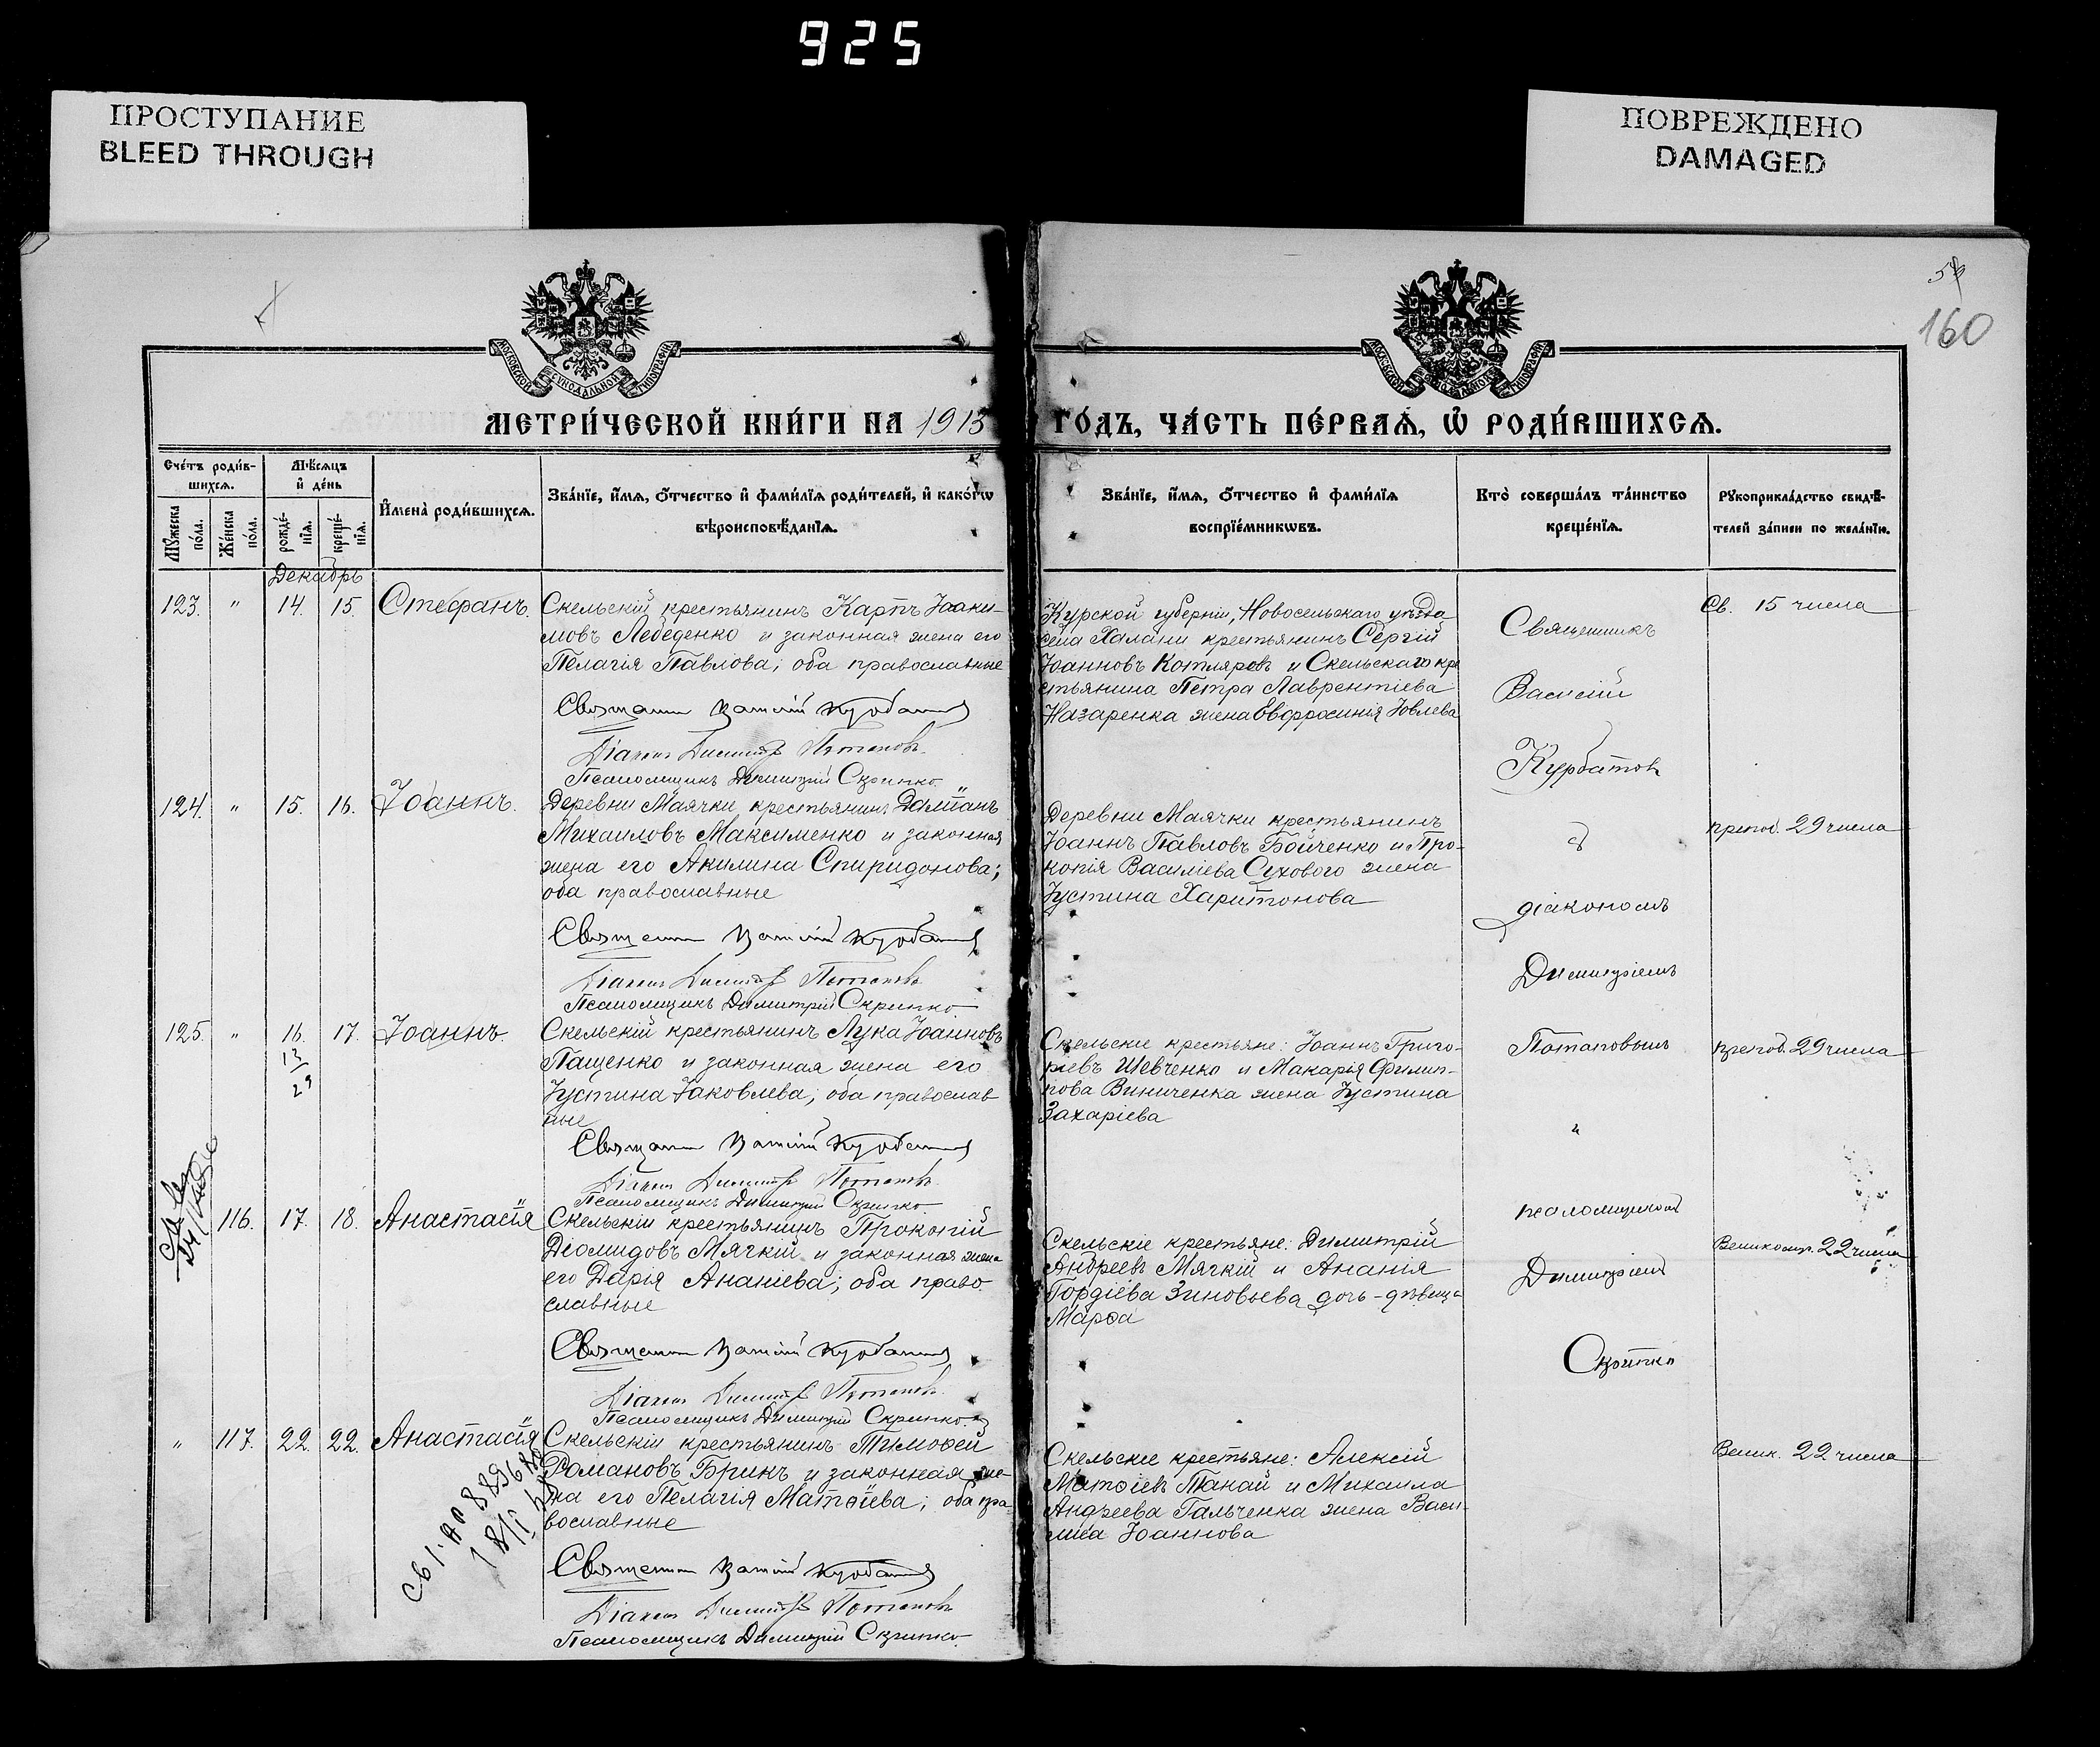 925
ПРОСТУПАНИЕ
BLEED THROUGH
ПОВРЕЖДЕНО
DAMAGED
160
МОСКОВСКОЙ СѴНОДАЛЬНОЙ ТИПОГРАФІИ
МОСКОВСКОЙ СѴНОДАЛЬНОЙ ТИПОГРАФІИ
МЕТРИ́ЧЕСКОЙ КНИ́ГИ НА 1913 ГО́ДЪ, ЧА́СТЬ ПЕ́РВАѦ, Ѡ҆ РОДИ́ВШИХСѦ.
Сче́тъ роди́в-
шихсѧ.
Мѣ́сѧцъ
и҆ де́нь
Мꙋ́жеска
по́ла.
Же́нска
по́ла.
рожде́-
нїѧ.
креще́-
нїѧ.
И҆мена̀ роди́вшихсѧ.
Зва́нїе, и҆́мѧ, о҆́тчество и҆ фами́лїѧ роди́телей, и҆ како́гѡ
вѣроисповѣ́данїѧ.
Зва́нїе, и҆́мѧ, о҆́тчество и҆ фами́лїѧ
воспрїе́мникѡвъ.
Кто̀ соверша́лъ та́инство
креще́нїѧ.
Рꙋкоприкла́дство свидѣ́-
телей за́писи по жела́нїю.
Декабрь
123. " 14. 15. Стефанъ.
Скельскій крестьянинъ Карпъ Іоаки-
мовъ Лебеденко и законная жена его
Пелагія Павлова; оба православные
Священн Василій Курбатов
Діакон Димитр Потапов
Псаломщикъ Димитрій Скрипко.
Курской губерніи, Новосельскаго уѣзда
села Халани крестьянинъ Сергій
Іоанновъ Котляровъ и Скельскаго кре
стьянина Петра Лаврентіева
Назаренка жена Евфросинія Іовлева
Священникъ
Василій
Курбатовъ
Св. 15 числа
124. " 15. 16. Іоаннъ.
Деревни Маячки крестьянинъ Даміанъ
Михаиловъ Максименко и законная
жена его Акилина Спиридонова;
оба православные
Священн Василій Курбатов
Діакон Димитр Потапов
Псаломщикъ Димитрій Скрипко.
Деревни Маячки крестьянинъ
Іоаннъ Павловъ Бойченко и Про-
копія Василіева Сухового жена
Іустина Харитонова
с
діакономъ
Димитріемъ
препод. 29 числа
125. " 16. 17. Іоаннъ.
13
29
Скельскій крестьянинъ Лука Іоанновъ
Пащенко и законная жена его
Іустина Іаковлева; оба православ
ные
Священн Василій Курбатов
Діакон Димитр Потапов
Псаломщикъ Димитрій Скрипко.
Скельскіе крестьяне: Іоаннъ Григо-
ріевъ Шевченко и Макарія Филип-
пова Виниченка жена Іустина
Захаріева
Потаповымъ
и
препод. 29 числа
116. 17. 18. Анастасія
Скельскій крестьянинъ Прокопій
Діомидовъ Мягкій и законная жена
его Дарія Ананіева; оба право
славные
Священн Василій Курбатов
Діакон Димитр Потапов
Псаломщикъ Димитрій Скрипко.
Скельскіе крестьяне: Димитрій
Андреевъ Мягкій и Ананія
Гордіева Зиновьева дочь - дѣвица
Марѳа
псаломщикомъ
Димитріемъ
Скрипко
Великомуч. 22 числа
" 117. 22. 22. Анастасія
Скельскій крестьянинъ Тимоѳей
Романовъ Брикъ и законная же-
на его Пелагія Матѳіева; оба пра
вославные
Священн Василій Курбатов
Діакон Димитр Потапов
Псаломщикъ Димитрій Скрипко.
Скельскіе крестьяне: Алексій
Матѳіевъ Танай и Михаила
Андреева Гальченка жена Васи-
лиса Іоаннова
Велик. 22 числа